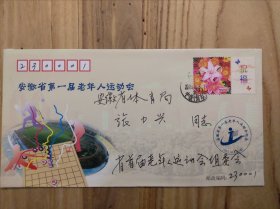 230001
祝福
安徽省第一届老年人运动会
安徽省体育局
张力兴 同志
省首届老年人运动会组委会
邮政编码：230001